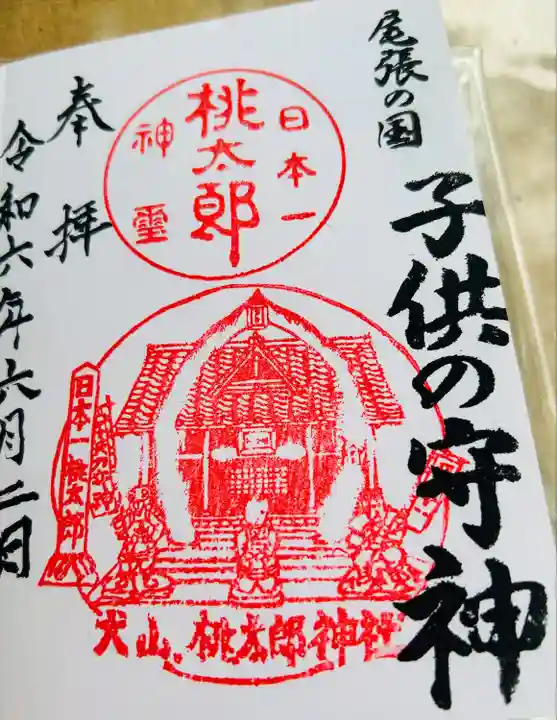 尾張の国
子供の守神
日本一
桃太郎
神霊
日本一桃太郎
犬山 桃太郎神社
奉拝
令和六年六月二日